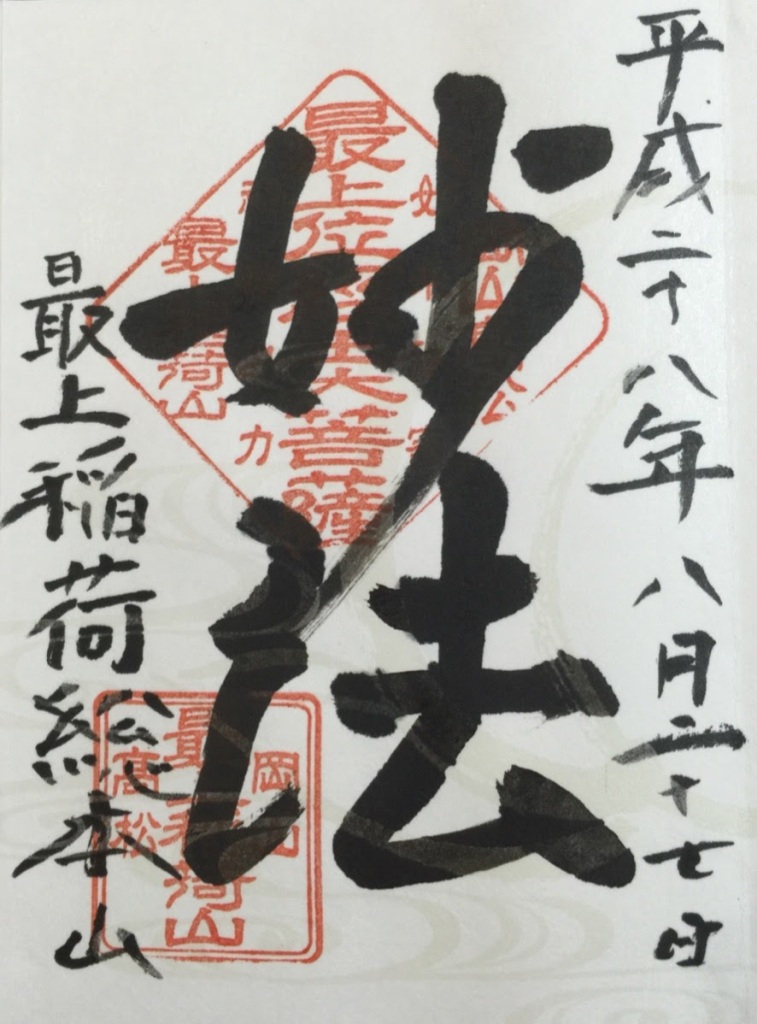 平成二十八年八月二十七日
妙法
最上稲荷総本山
最上位経王大菩薩
最上稲荷山
岡山
最上稲荷山
高松